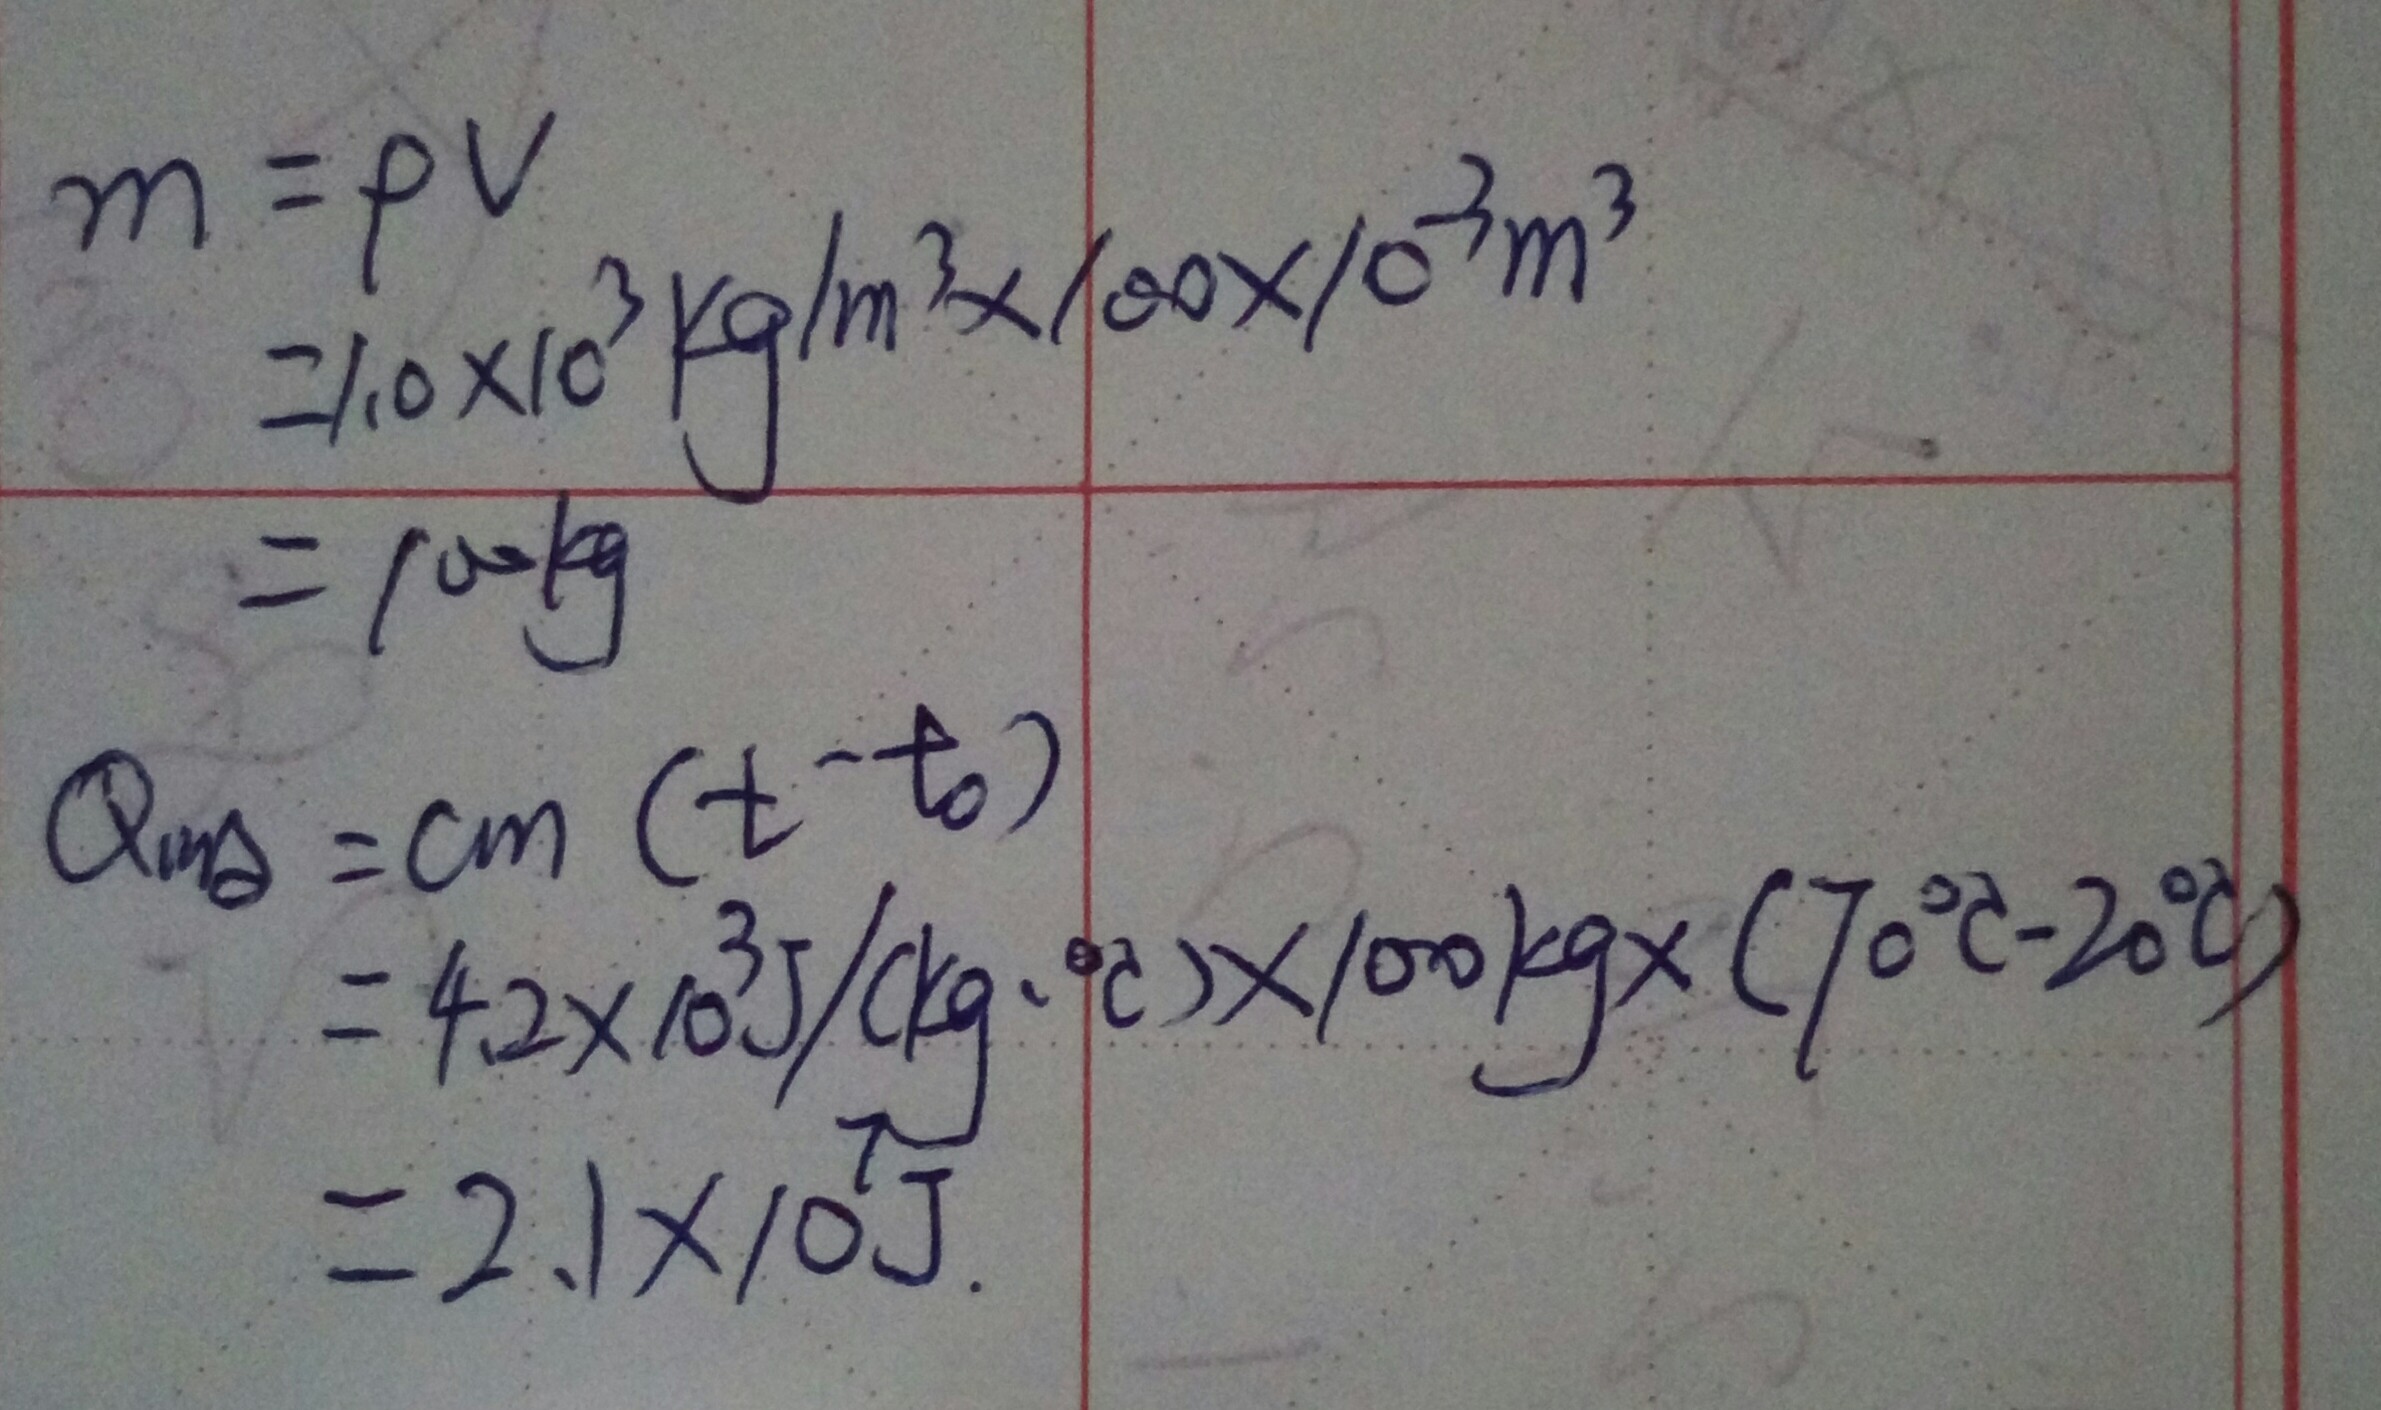 m = ρV
=1.0×10³kg/m³×100×10⁻³m³
= 100kg
Q吸 = cm (t-t₀)
= 4.2×10³J/(kg·℃)×100kg×(70℃-20℃)
= 2.1×10⁷J.